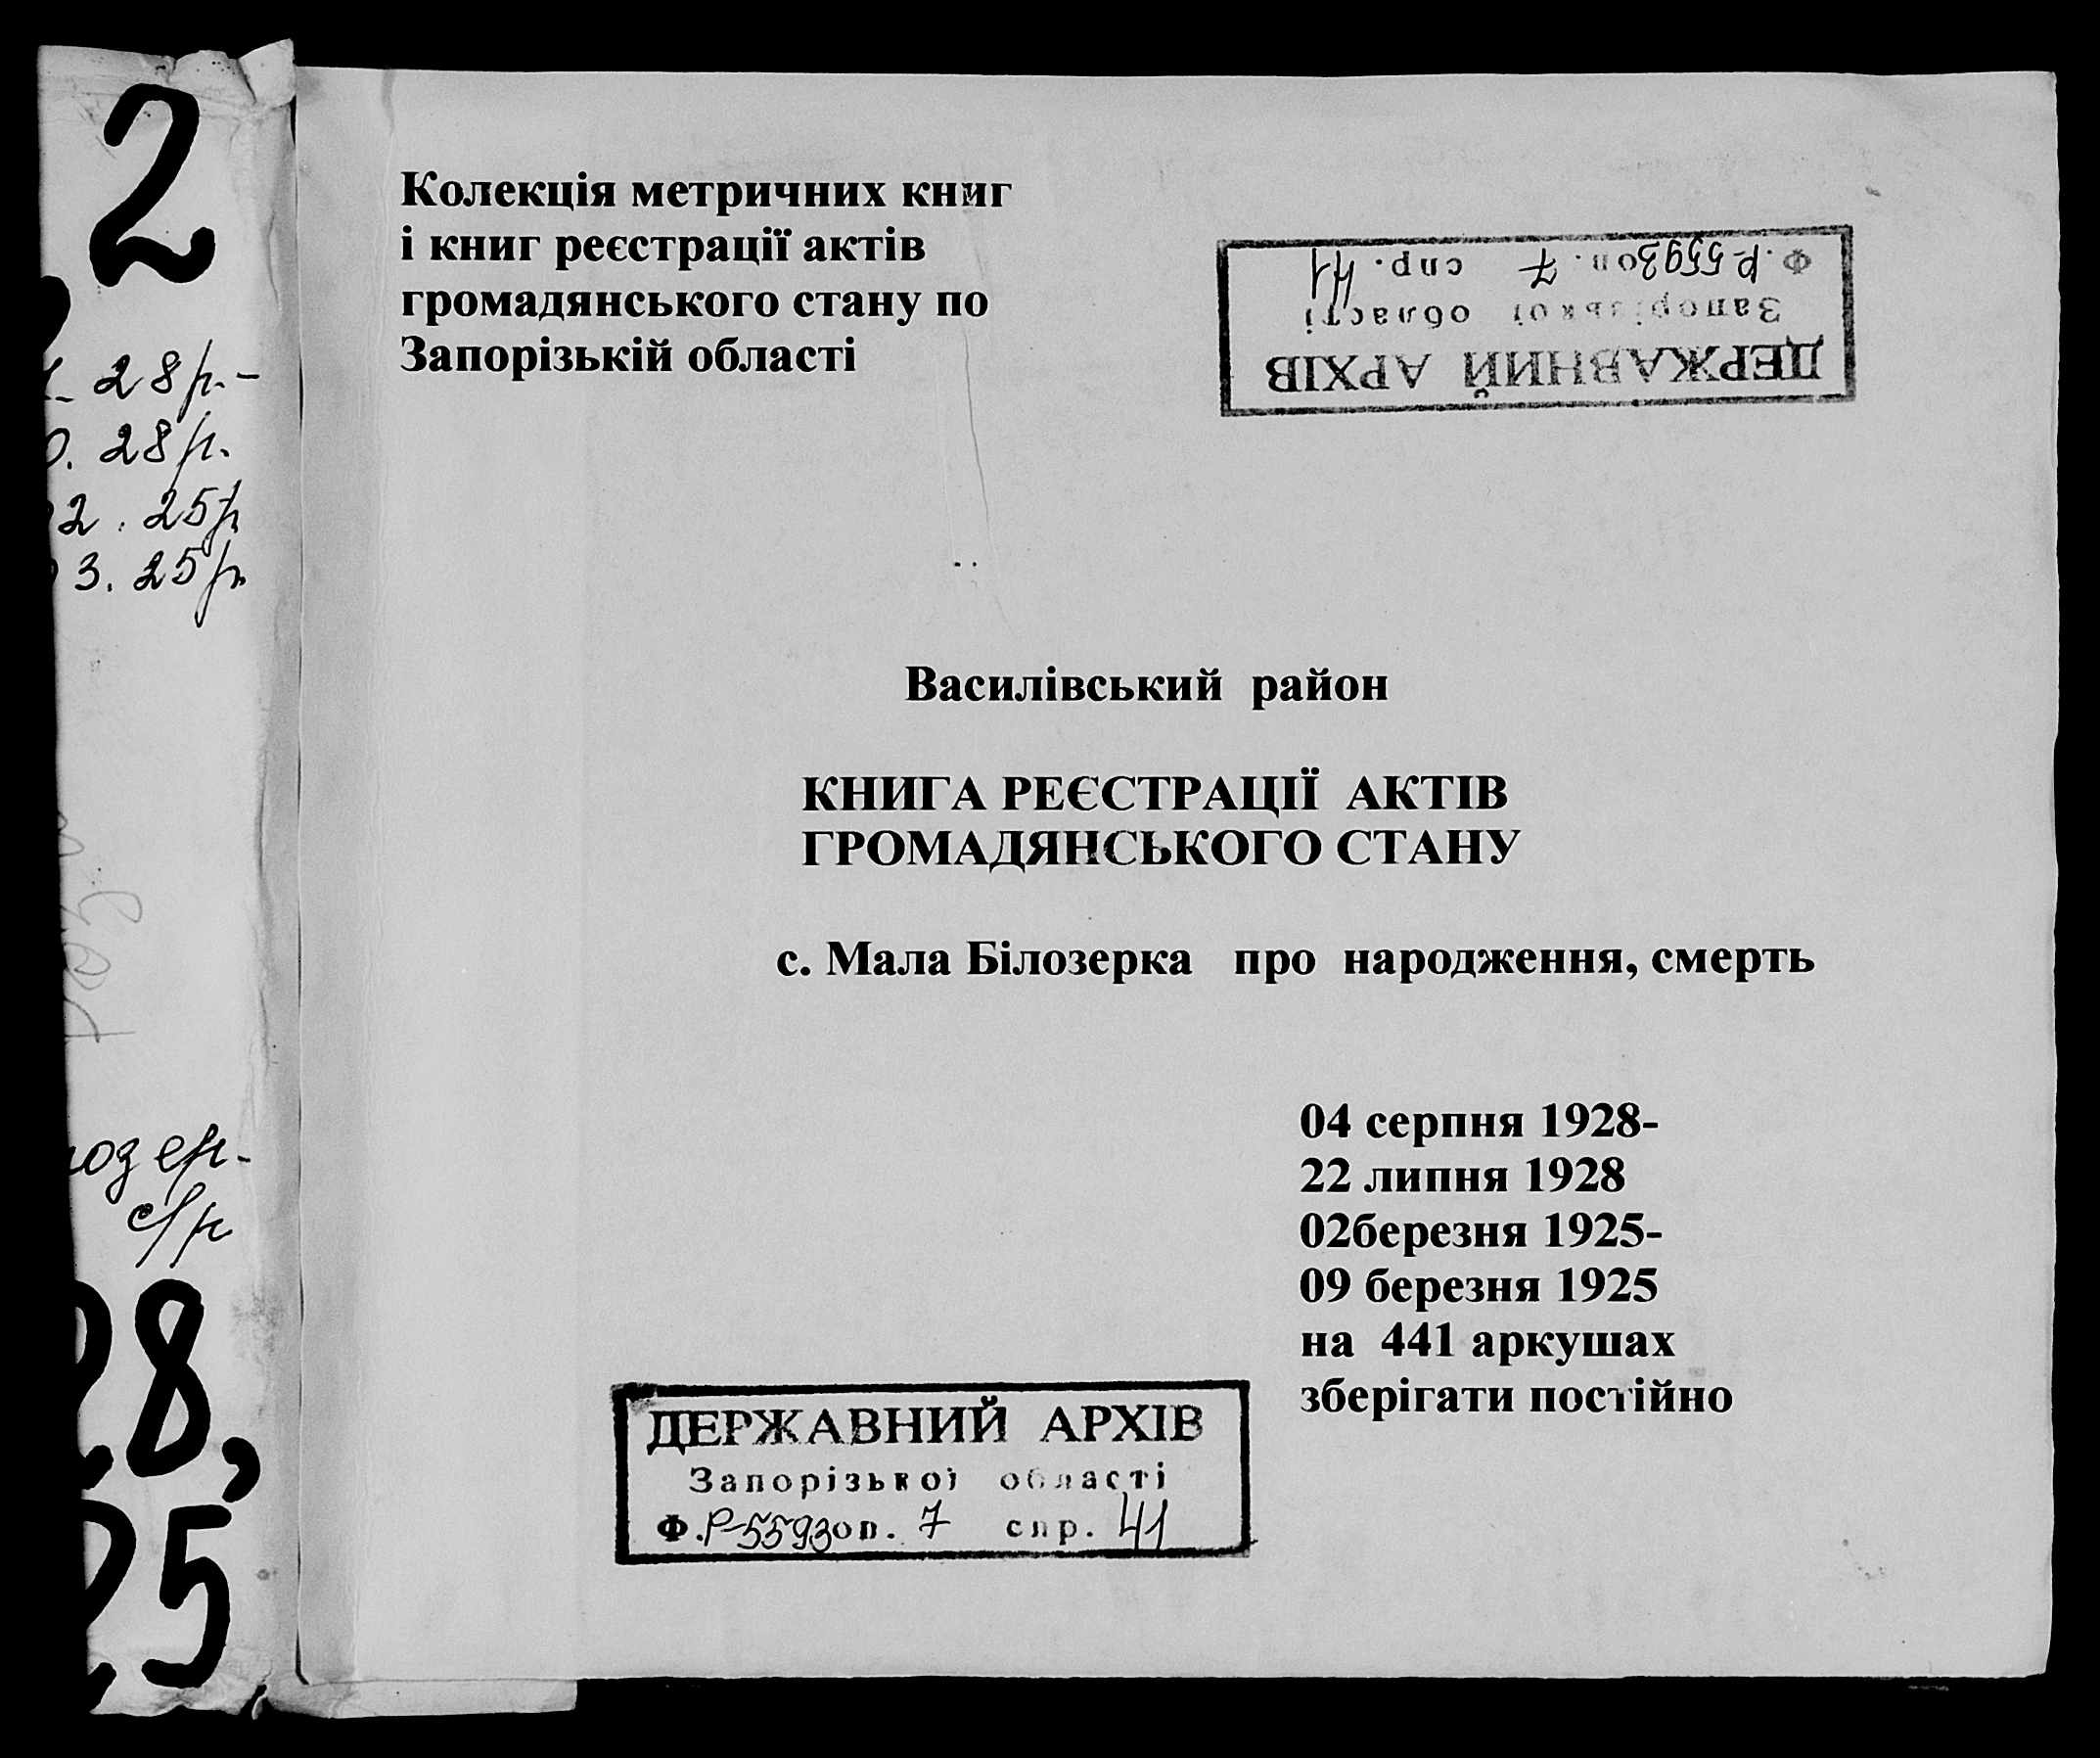 2
28р.-
28р.
2. 25р
3. 25р.
с/р
28,
25
Колекція метричних книг
і книг реєстрації актів
громадянського стану по
Запорізькій області
ДЕРЖАВНИЙ АРХІВ
Запорізької області
Ф.Р-5593оп. 7 спр. 41
Василівський район
КНИГА РЕЄСТРАЦІЇ АКТІВ
ГРОМАДЯНСЬКОГО СТАНУ
с. Мала Білозерка про народження, смерть
04 серпня 1928-
22 липня 1928
02березня 1925-
09 березня 1925
на 441 аркушах
зберігати постійно
ДЕРЖАВНИЙ АРХІВ
Запорізької області
Ф.Р-5593оп. 7 спр. 41